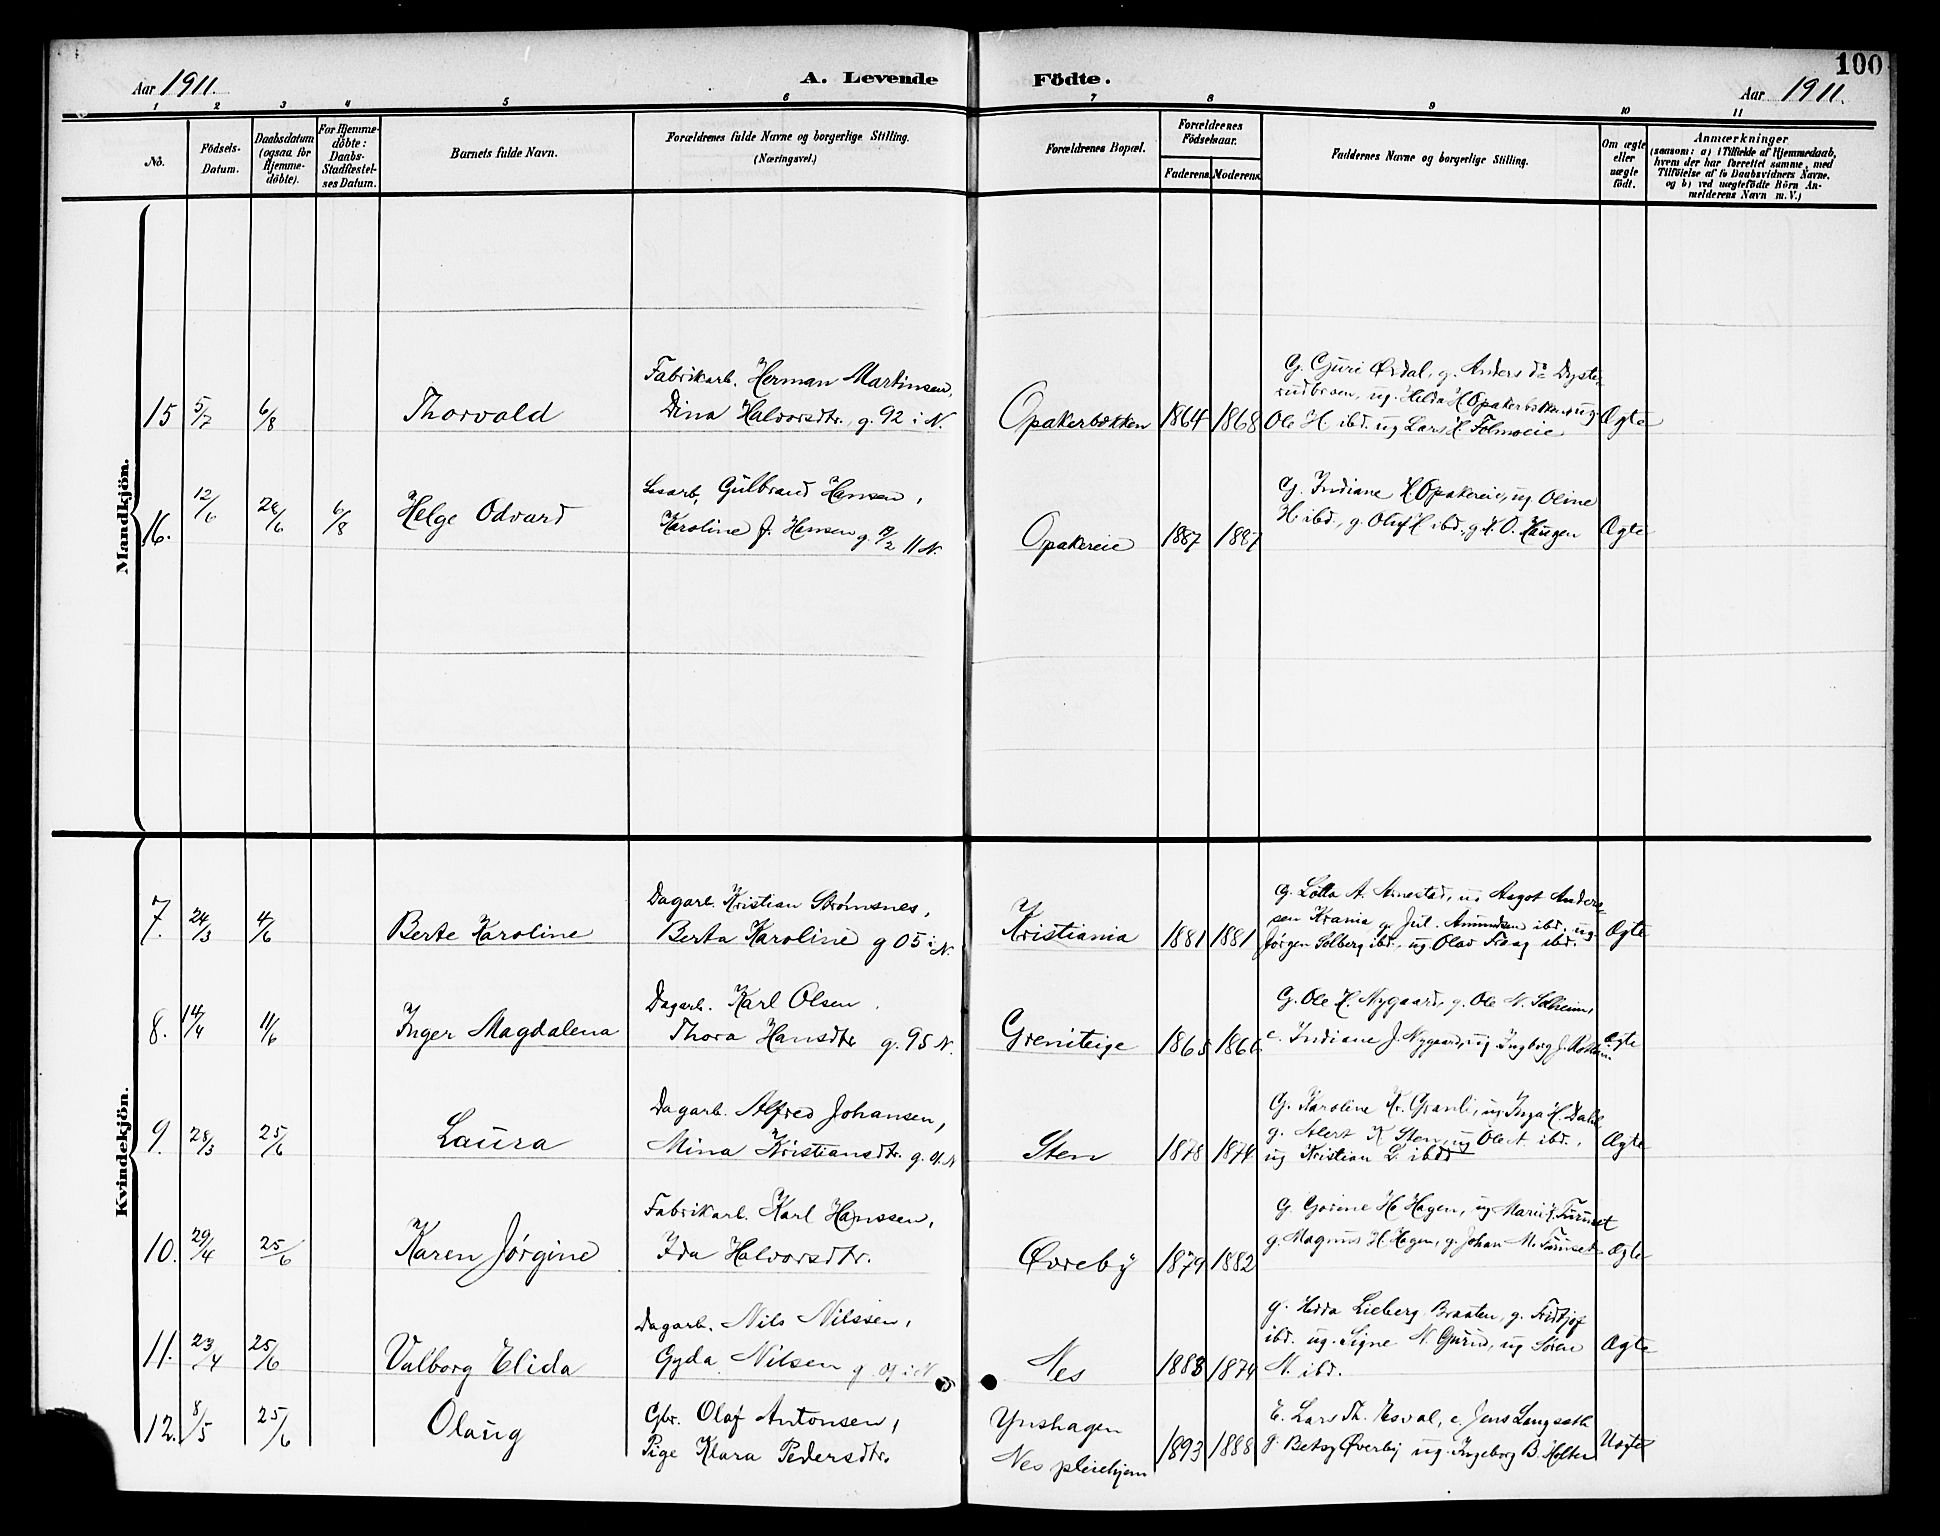 100
Aar 1911.
A. Levende Födte.
Aar 1911.
1 2 3 4 5 6 7 8 9 10 11
No.
Födsels-Datum.
Daabsdatum (ogsaa for Hjemme-döbte).
For Hjemme-döbte: Daabs-Stadfæstel-ses Datum.
Barnets fulde Navn.
Forældrenes fulde Navne og borgerlige Stilling. (Næringsvei.)
Forældrenes Bopæl.
Forældrenes Födselsaar.
Faderens. Moderens.
Faddernes Navne og borgerlige Stilling.
Om ægte eller uægte födt.
Anmærkninger
(saasom: a) i Tilfælde af Hjemmedaab,
hvem der har forrettet samme, med
Tilföielse af to Daabsvidners Navne.
og b) ved uægtefödte Börn An-
melderens Navn m. V.)
Mandkjön.
Fabrikarb. Herman Martinsen,
G. Guri Ørdal, g. Anders do Dyste-
rudbraen, ug. Hilda H Opakerbekken, ug.
15 5/7 6/8 Thorvald Dina Halvorsdtr. g. 92 i N. Opakerbekken 1864 1868 Ole H. ibd. ug Lars H. Ægte
12/6 26/6 6/8 Helge Odvard Gulbrand Hansen,
G. Indiane H Opakereie, ug Oline
16. Karoline J. Hansen g. 11 N. Opakereie 1887 H. ibd., g. Oluf H ibd., g K. O. Haugen Ægte
Kvindekjön.
Dagarb. Kristian Strømsnes,
g. Lotta A. ug Aagot Anders-
sen Krania g. Jul. Amundsen ibd. ug.
7. 24/3 4/6 Berte Karoline Berta Karoline g 05 i N. Kristiania 1881 1881 Jørgen Solberg ibd., ug Olav ibd. Ægte
Dagarb. Karl Olsen.
G. Ole H. Nygaard, g. Ole N. Solheim,
8. 14/4 11/6 Inger Magdalena Thora Hansdtr g. 95 N. Greniteige 1865 1866 e. Indiane J. Nygaard, ug Ingborg J. Ægte
Dagarb. Alfred Johansen,
G. Karoline Kr. Granli, ug Inga H. Dahl
g. K Sten, ug Ole A ibd.,
9. 28/3 25/6 Laura Mina Kristiansdtr. g. 01 N Sten 1878 1874 ug Kristian L. ibd Ægte
Fabrikarb. Karl Hanssen,
G. Gorine H. Hagen, ug Marie Furuset
10. 29/4 25/6 Karen Jørgine Ida Halvorsdtr. Øvreby 1879 1882 g. Magnus H Hagen, g. Johan M. Furuset Ægte
Dagarb. Nils Nilssen,
g. Lieberg Braaten, g. Fridtjof
ibd. ug. Signe N. ug Søren
11. 23/4 25/6 Valborg Elida Gyda Nilsen g. 01 i N Nes 1883 1874 N. ibd. Ægte
Gbr. Olaf Antonsen, Ynshagen E. Lars Th. Esval, e. Jens Langseth
12. 8/5 25/6 Olaug Pige Klara Pedersdtr. Nes pleiehjem 1893 1888 g. Betsy Øverby ug. Ingeborg B. Holter Uægte